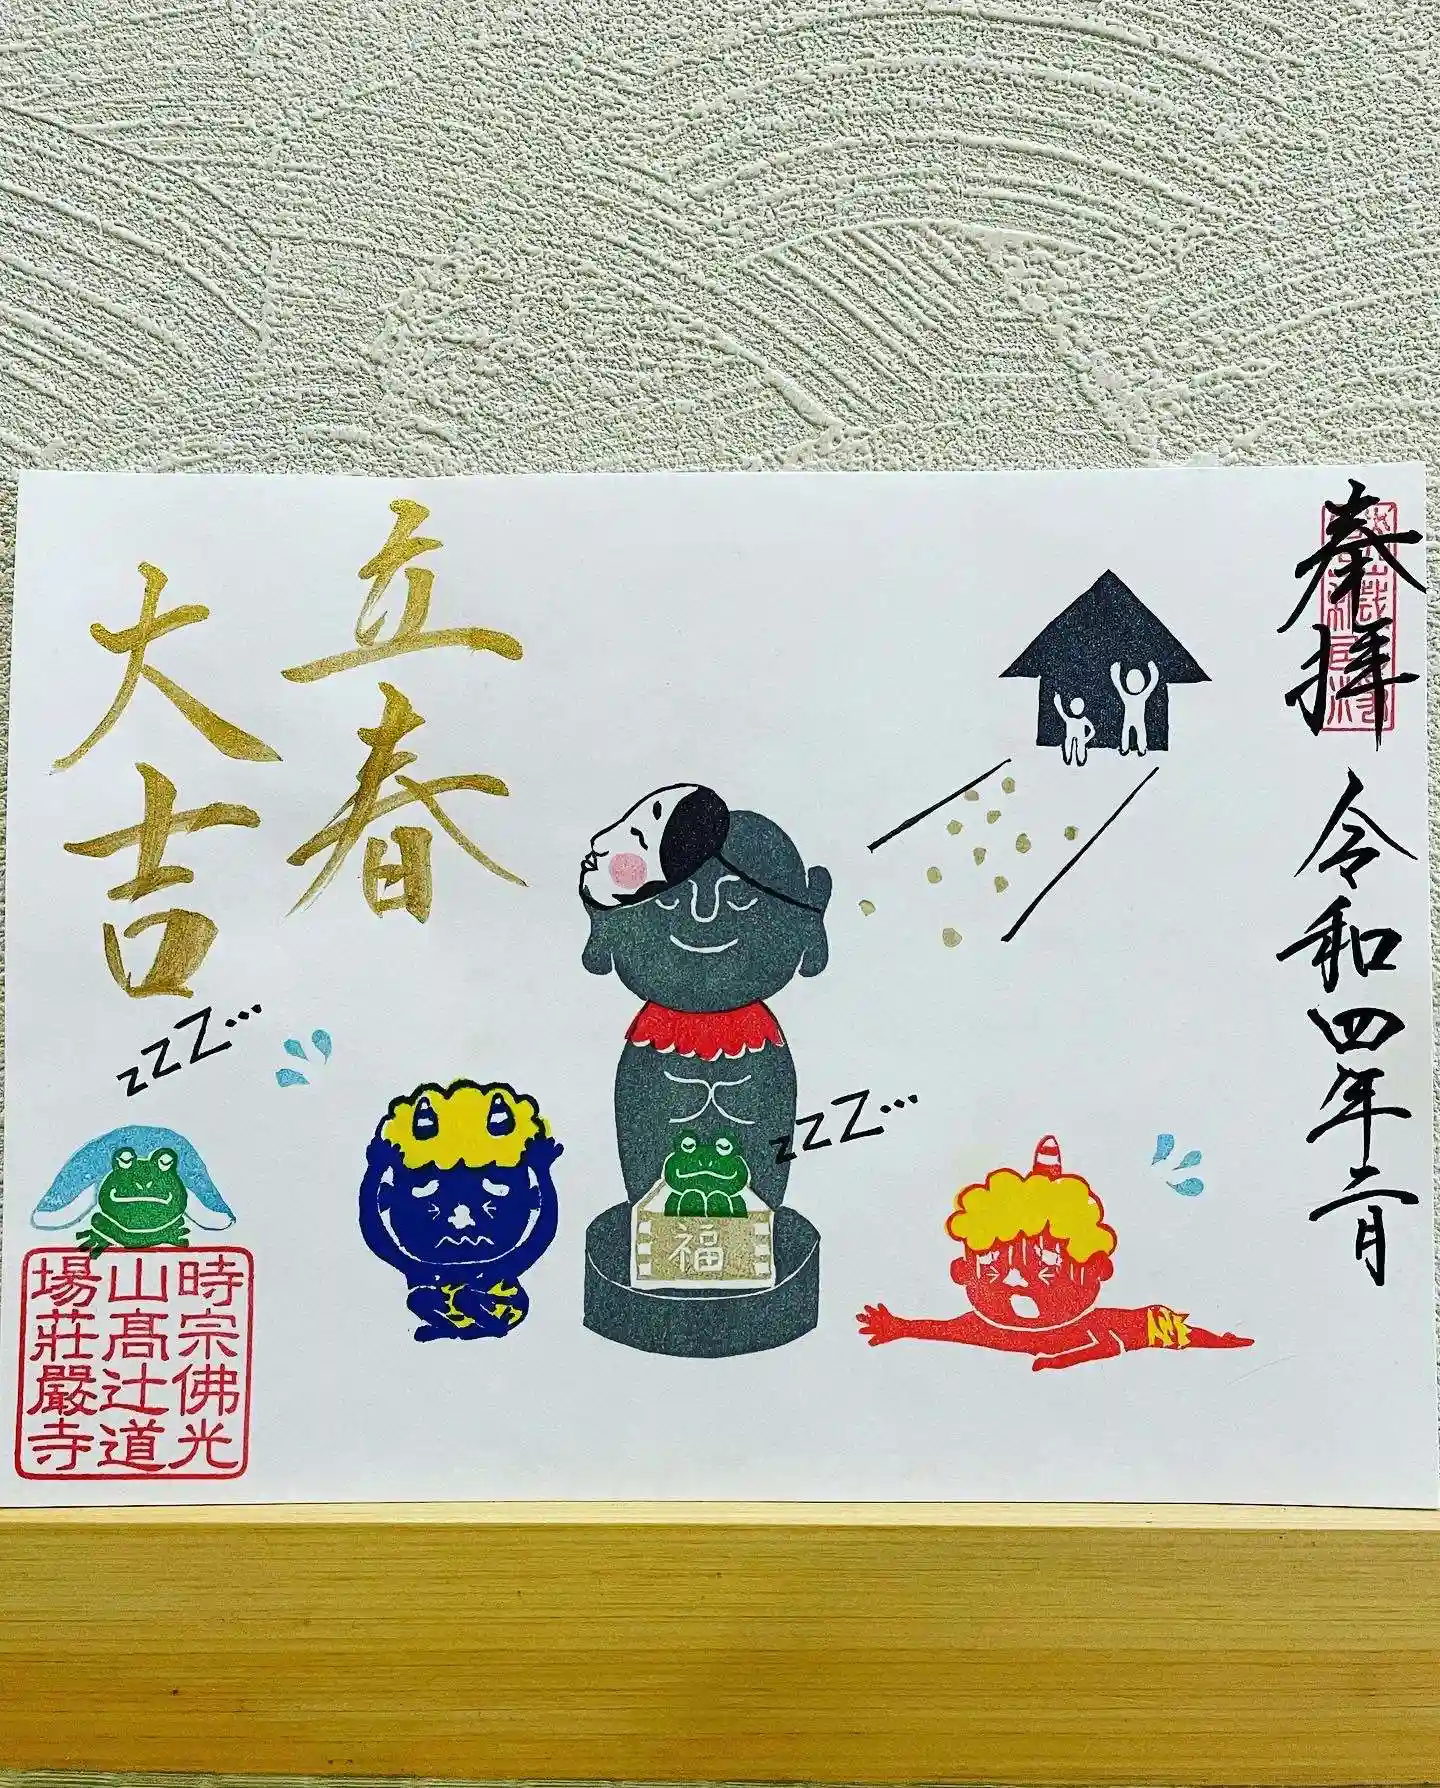 奉拝
令和四年二月
立春
大吉
zzZ…
zzZ…
福
時宗佛光
山髙辻道
場莊嚴寺